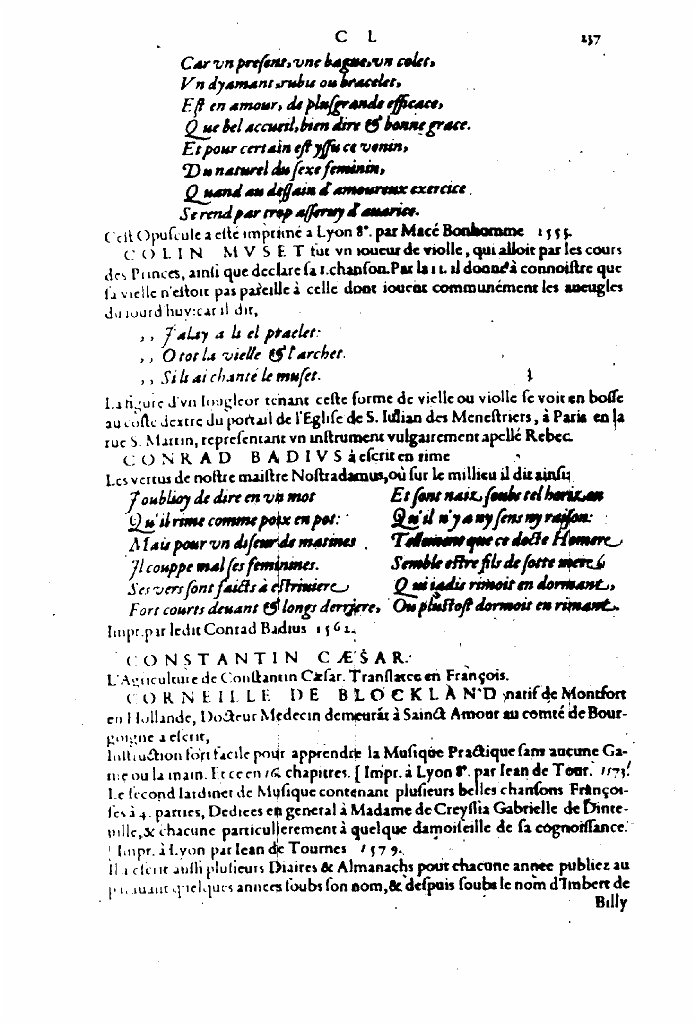 C L 237
Car vn preſent, vne bague, vn colet,
Vn dyamant, rubis ou bracelet,
Eſt en amour, de plus grande efficace,
Que bel accueil, bien dire & bonne grace.
Et pour certain eſt yſſu ce venin,
Du naturel du ſexe feminin,
Quand au deſſain d'amoureux exercice
Se rend par trop aſſeruy d'auarice.
Ceſt Opuſcule a eſté imprimé a Lyon 8°. par Macé Bonhomme 1555.
COLIN MVSET fut vn ioueur de violle, qui alloit par les cours
des Princes, ainſi que declare ſa 1. chanſon. Par la 11. il donne à connoiſtre que
ſa vielle n'eſtoit pas pareille à celle dont iouent communément les aueugles
du iourd'huy: car il dit,
,, J'alay a li el praelet:
,, O tot la vielle & l'archet.
,, Si li ai chanté le muſet.
La figure d'vn Iougleor tenant ceſte forme de vielle ou violle ſe voit en boſſe
au coſte dextre du portail de l'Egliſe de S. Iulian des Meneſtriers, à Paris en la
rue S. Martin, repreſentant vn inſtrument vulgairement apellé Rebec.
CONRAD BADIVS à eſcrit en rime
Les vertus de noſtre maiſtre Noſtradamus, où ſur le millieu il dit ainſi,
J'oublioy de dire en vn mot
Qu'il rime comme poix en pot:
Mais pour vn diſeur de marines
Il couppe mal ſes feminines.
Ses vers ſont faicts à eſtriuiere,
Fort courts deuant & longs derriere,
Et ſont naiz, ſoubs tel horizon
Qu'il n'y a ny ſens ny raiſon:
Tellement que ce docte Homere
Semble eſtre fils de ſotte mere
Qui iadis rimoit en dormant,
Ou pluſtoſt dormoit en rimant.
Impr. par ledit Conrad Badius 1562.
CONSTANTIN CÆSAR.
L'Agriculture de Conſtantin Cæſar. Tranſlatee en François.
CORNEILLE DE BLOCKLAND natif de Montfort
en Hollande, Docteur Medecin demeurāt à Sainct Amour au comté de Bour-
goigne a eſcrit,
Inſtruction fort facile pour apprendre la Muſique Practique ſans aucune Ga-
me ou la main. Et ce en 16. chapitres. [Impr. à Lyon 8°. par Iean de Tour. 1573.
Le ſecond Iardinet de Muſique contenant pluſieurs belles chanſons Françoi-
ſes à 4. parties, Dediees en general à Madame de Creyſſia Gabrielle de Dinte-
uille, & chacune particulierement à quelque damoiſelle de ſa cognoiſſance.
Impr. à Lyon par Iean de Tournes 1579.
Il a eſcrit auſſi pluſieurs Diaires & Almanachs pour chacune annee publiez au
parauant quelques annees ſoubs ſon nom, & deſpuis ſoubs le nom d'Imbert de
Billy